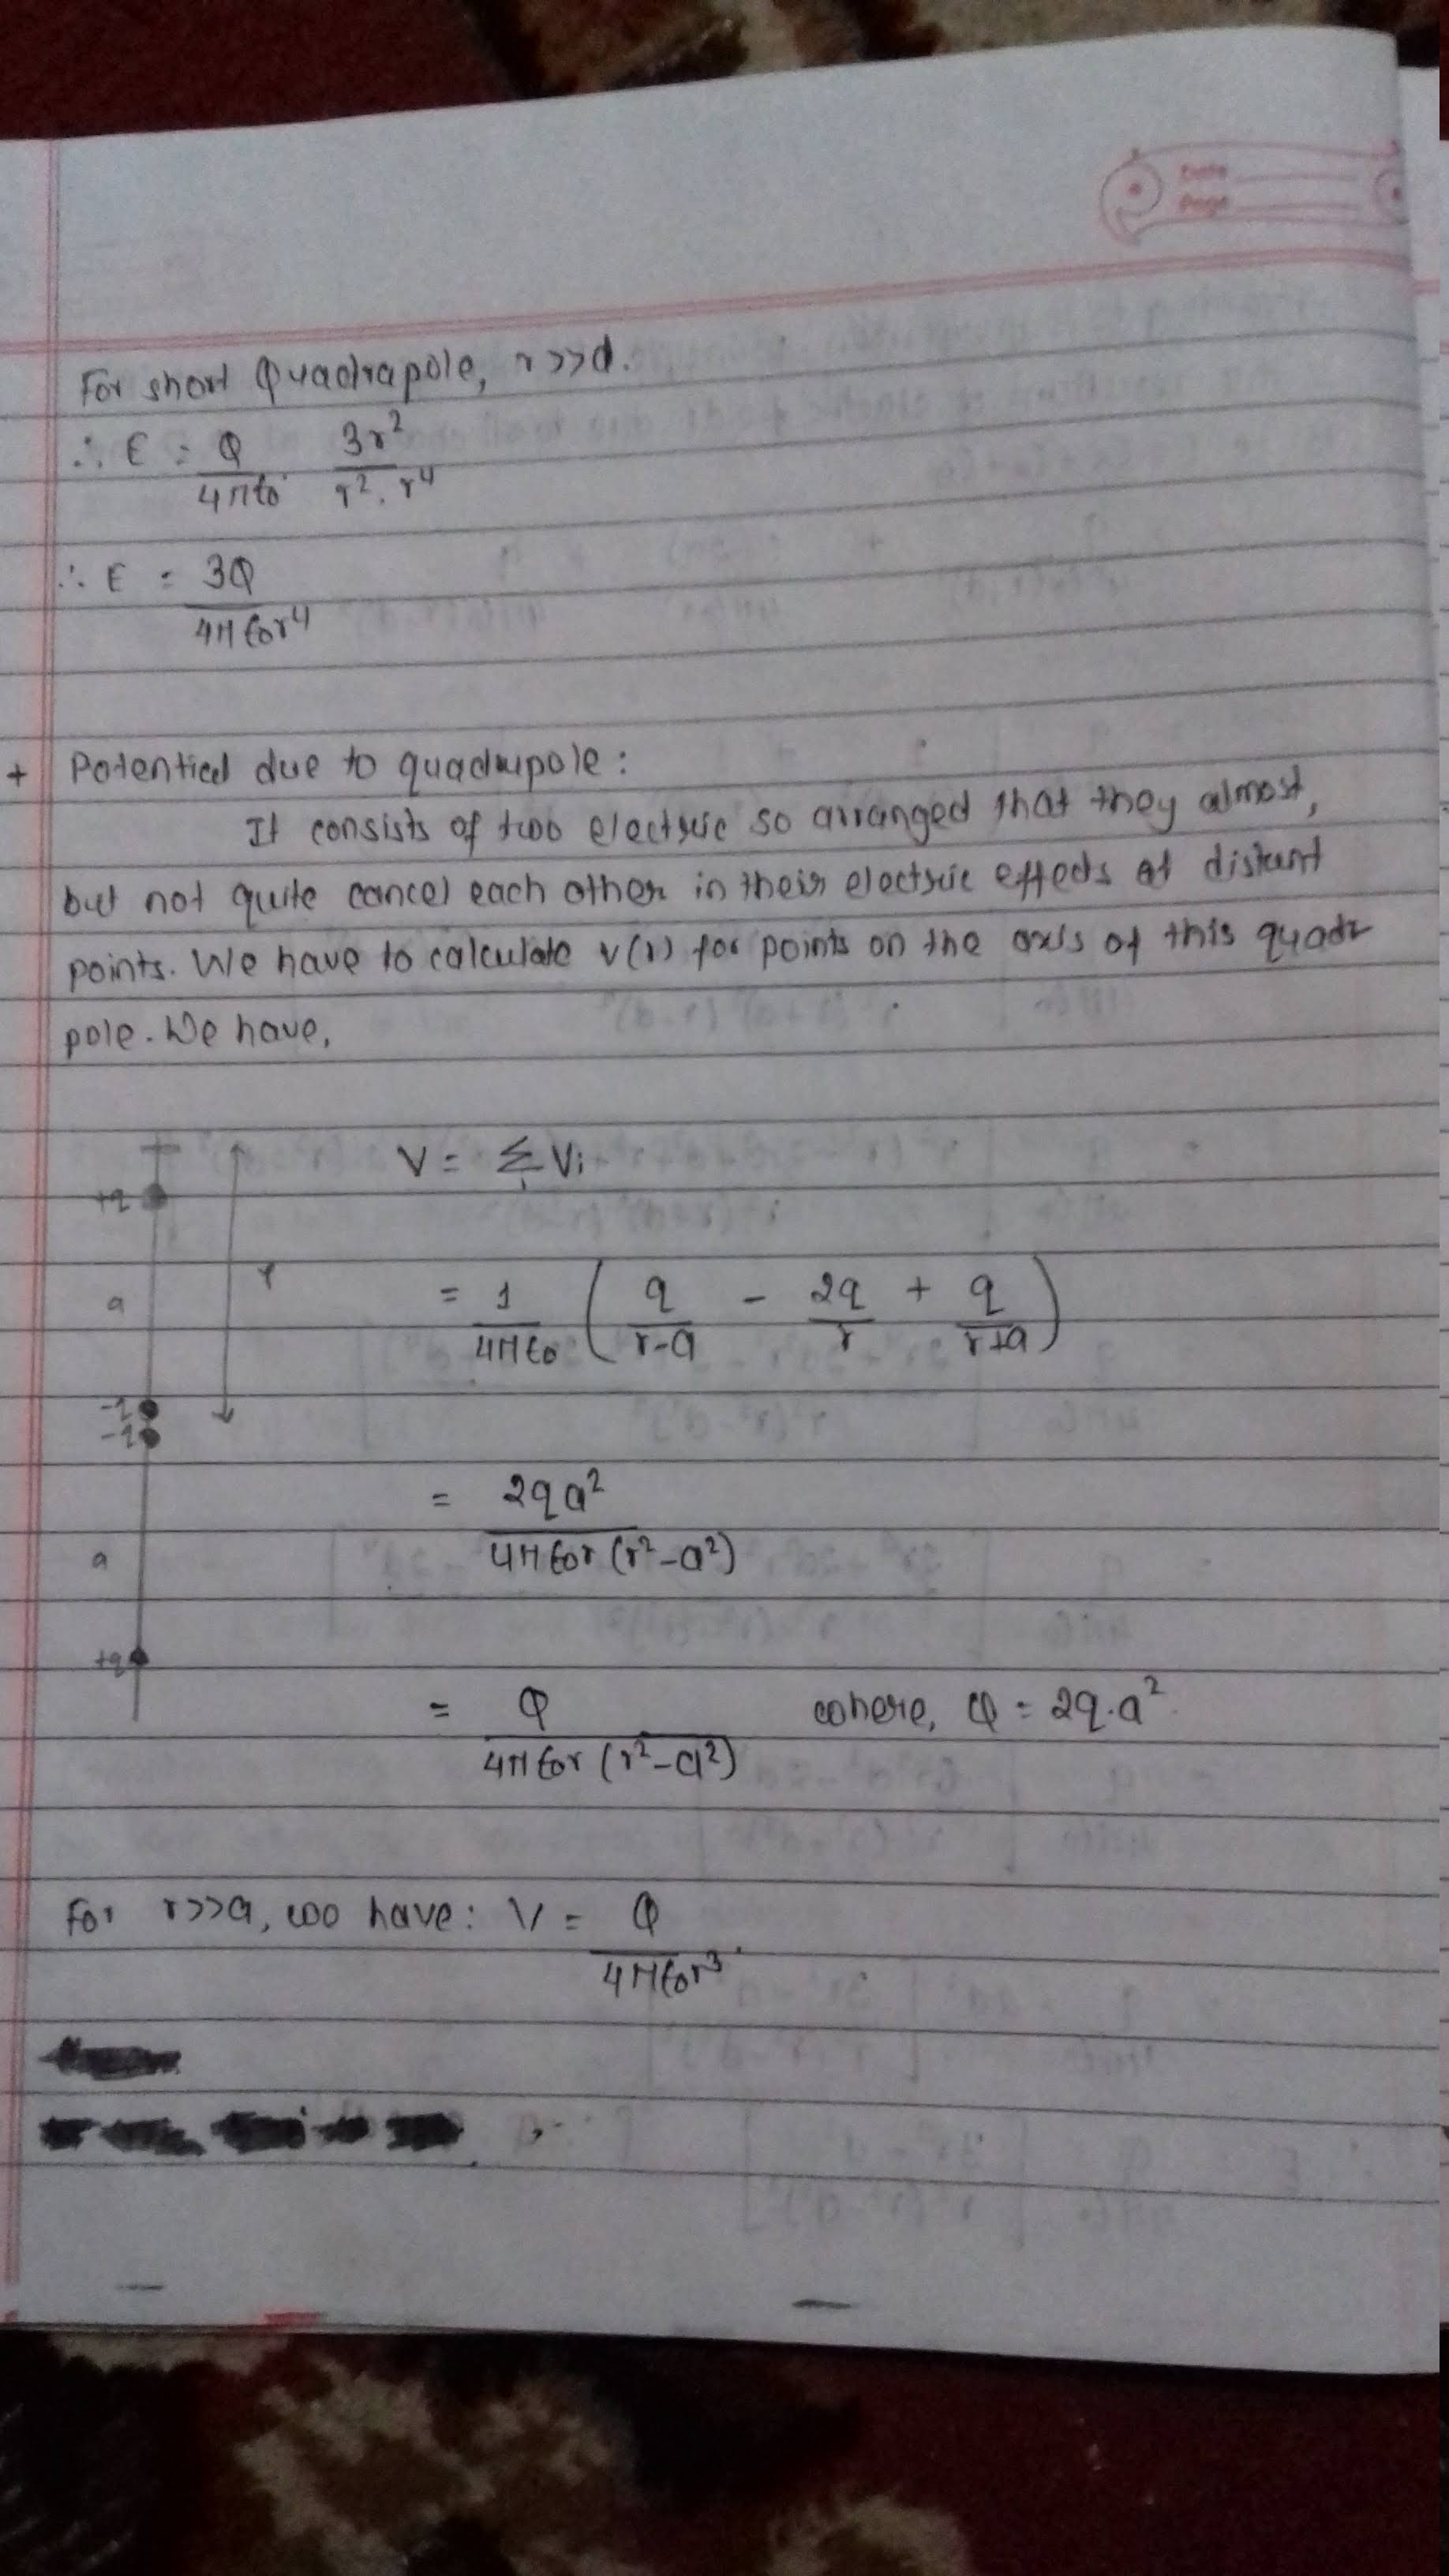 Date
Page
For short Quadrapole, r>>d.
∴ E = Q/4πε0 · 3r²/r².r⁴
∴ E = 3Q/4πε0r⁴
+ Potential due to quadrupole:
It consists of two electric so arranged that they almost,
but not quite cancel each other in their electric effects at distant
points. We have to calculate v(r) for points on the axis of this quadr
pole. We have,
V = ΣVi
i
+q
= 1/4πε0 ( q/r-a - 2q/r + q/r+a )
r
a
-q
-q
= 2qa²/4πε0r(r²-a²)
a
+q
= Q/4πε0r(r²-a²) where, Q = 2q.a²
For r>>a, we have: V = Q/4πε0r³.